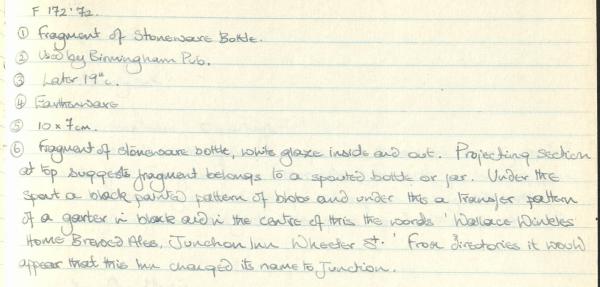 F 172'72.
① Fragment of Stoneware Bottle.
② Used by Birmingham Pub.
③ Later 19th c.
④ Earthenware
⑤ 10 x 7cm.
⑥ Fragment of stoneware bottle, white glaze inside and out. Projecting section
at top suggests fragment belongs to a spouted bottle or jar. Under the
spout a black painted pattern of blobs and under this a transfer pattern
of a garter in black and in the centre of this the words 'Wallace Winkles
Home Brewed Ales, Junction Inn Wheeler St.' From directories it would
appear that this Inn changed its name to Junction.